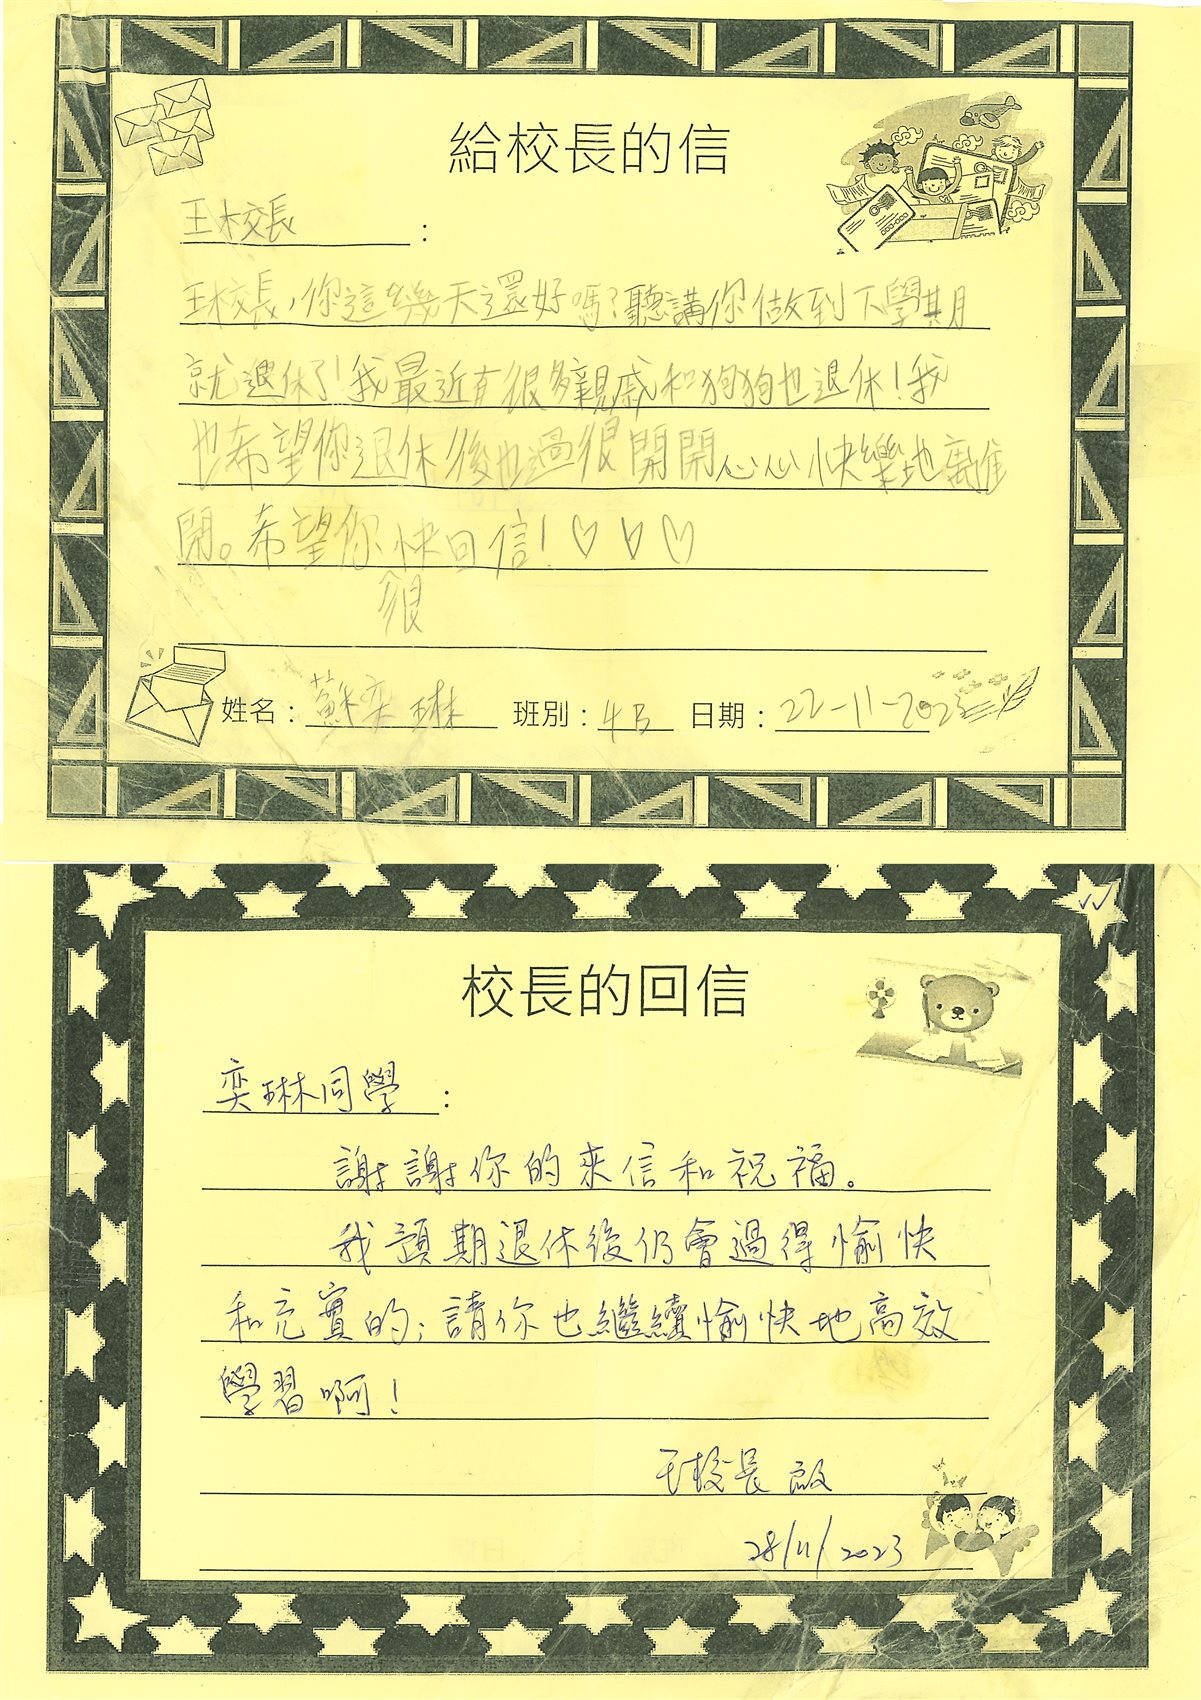 給校長的信
王校長：
王校長，你這幾天還好嗎？聽講你做到下學期
就退休了！我最近有很多親戚和狗狗也退休！我
也希望你退休後也過很開開心心快樂地離
開。希望你快回信！♡♡♡
很
姓名：蘇奕琳 班別：4B 日期：22-11-2023
校長的回信
奕琳同學：
謝謝你的來信和祝福。
我預期退休後仍會過得愉快
和充實的；請你也繼續愉快地高效
學習啊！
王校長啟
28/11/2023